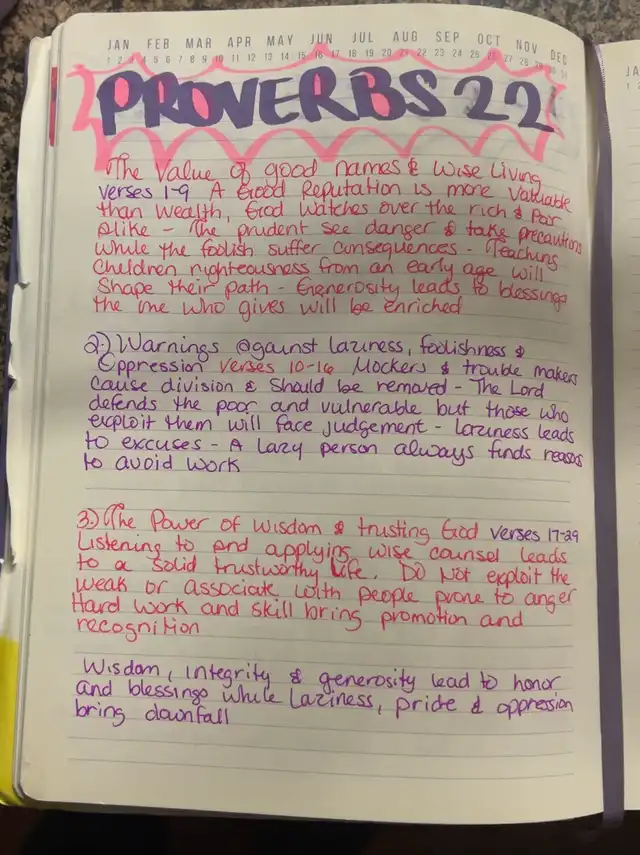 JAN FEB MAR APR MAY JUN JUL AUG SEP OCT NOV DEC
PROVERBS 22
The Value of good names & Wise Living
verses 1-9 A Good Reputation is more Valuable
than wealth, God Watches over the rich & Poor
alike - The prudent see danger & take precautions
while the foolish suffer consequences - Teaching
Children righteousness from an early age will
Shape their path - Generosity leads to blessings
the one who gives will be enriched
2.) Warnings against laziness, foolishness &
Oppression verses 10-16 Mockers & trouble makers
cause division & should be removed - The Lord
defends the poor and vulnerable but those who
exploit them will face judgement - Laziness leads
to excuses - A lazy person always finds reasons
to avoid work
3.) The Power of Wisdom & trusting God verses 17-29
Listening to and applying wise counsel leads
to a solid trustworthy life. Do Not exploit the
weak or associate with people prone to anger
Hard work and skill bring promotion and
recognition
Wisdom, integrity & generosity lead to honor
and blessings while Laziness, pride & oppression
bring downfall